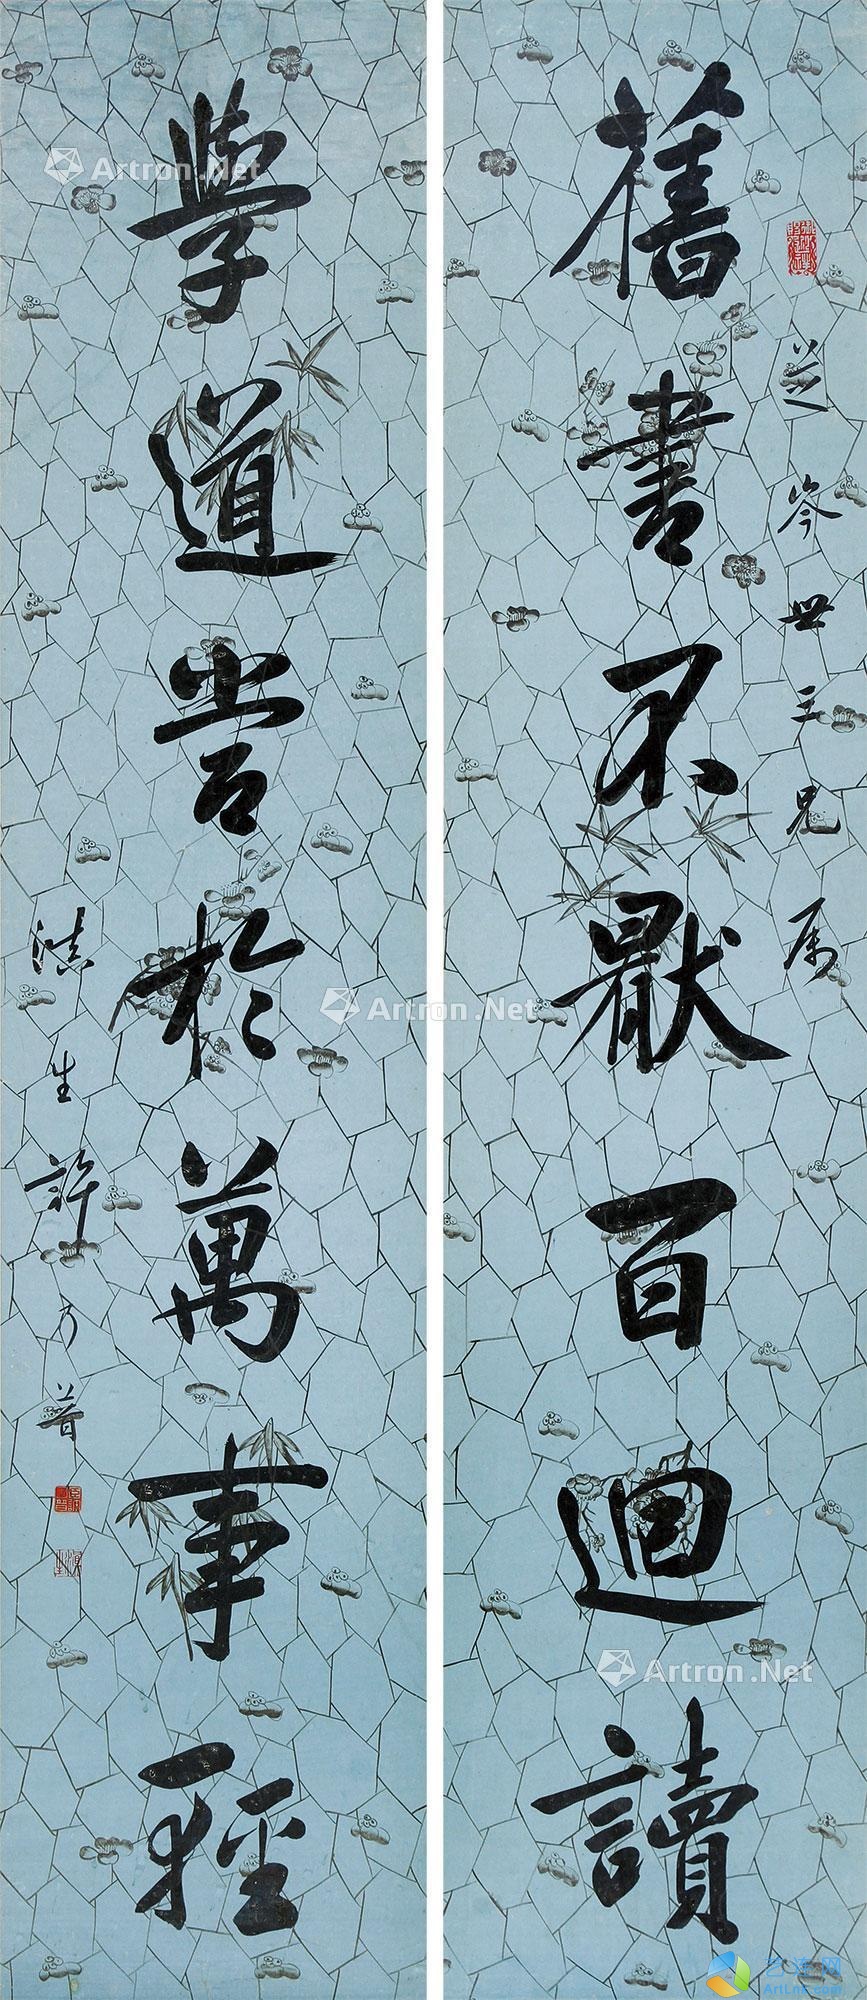 芝岑世三兄属
舊書不猒百迴讀
學道當於萬事輕
滇生許乃普
Artron.Net
Artron.Net
Artron.Net
艺连网
ArtLnk.com